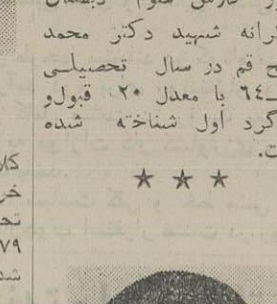 رانه شهید دکتر محمد
ح قم در سال تحصیلی
ـ٦٤ با معدل ٢٠ قبول و
گرد اول شناخته شده
ت.
★ ★ ★
کلا
خر
تح
٧٩
شد